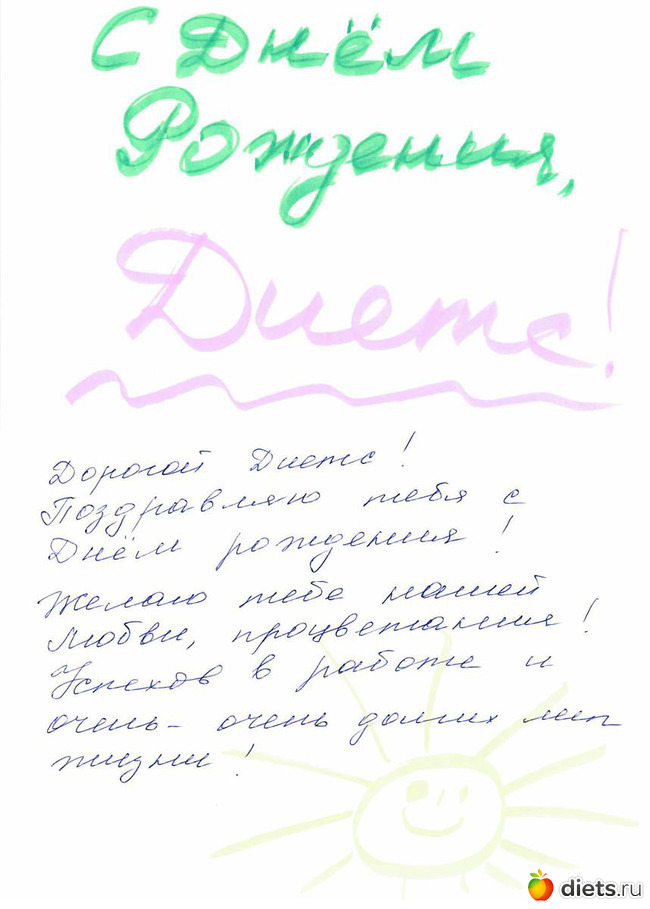 С Днём
Рождения,
Диетс!
Дорогой Диетс!
Поздравляю тебя с
Днём рождения!
Желаю тебе нашей
любви, процветания!
Успехов в работе и
очень-очень долгих лет
жизни!
diets.ru